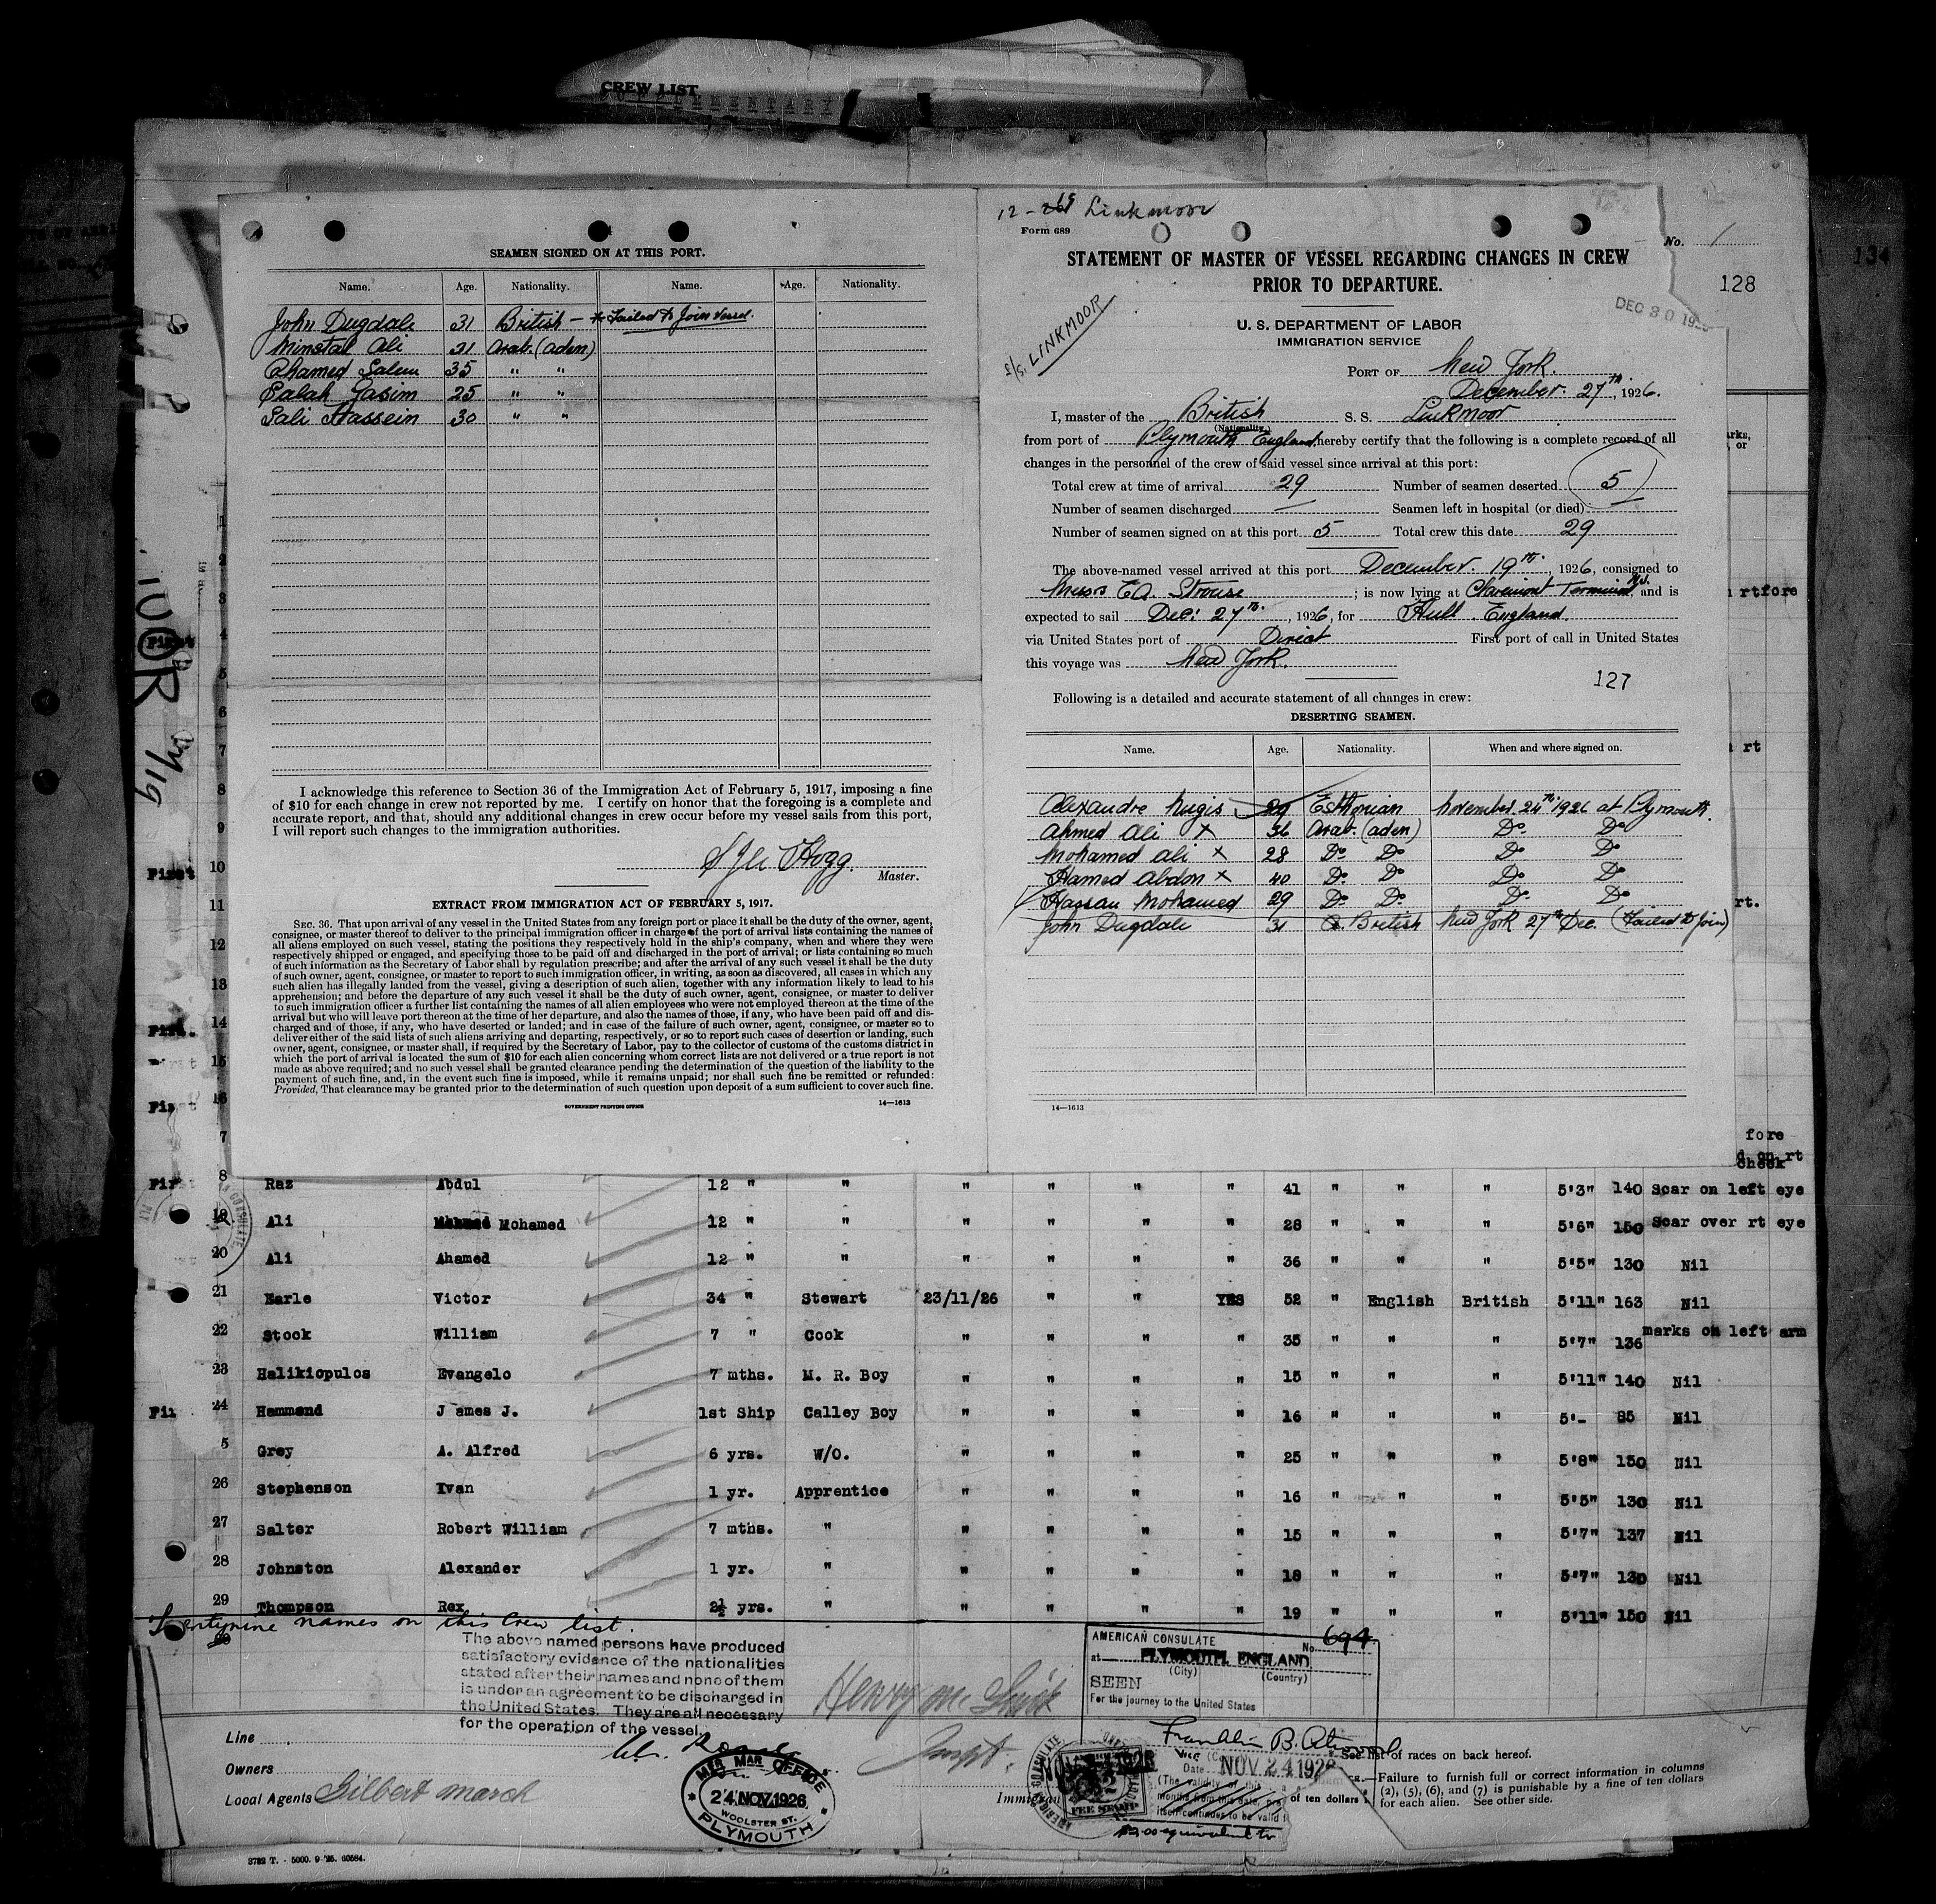 CREW LIST
SUPPLEMENTARY
SEAMEN SIGNED ON AT THIS PORT.
Name. Age. Nationality. Name. Age. Nationality.
John Dugdale 31 British — * Failed to Join Vessel.
Minstal Ali 21 Arab. (Aden)
Ahamed Salem 35 " "
Salah Gasim 25 " "
Sali Hassein 30 " "
I acknowledge this reference to Section 36 of the Immigration Act of February 5, 1917, imposing a fine
of $10 for each change in crew not reported by me. I certify on honor that the foregoing is a complete and
accurate report, and that, should any additional changes in crew occur before my vessel sails from this port,
I will report such changes to the immigration authorities.
Hogg.
Master.
EXTRACT FROM IMMIGRATION ACT OF FEBRUARY 5, 1917.
SEC. 36. That upon arrival of any vessel in the United States from any foreign port or place it shall be the duty of the owner, agent,
consignee, or master thereof to deliver to the principal immigration officer in charge of the port of arrival lists containing the names of
all aliens employed on such vessel, stating the positions they respectively hold in the ship's company, when and where they were
respectively shipped or engaged, and specifying those to be paid off and discharged in the port of arrival; or lists containing so much
of such information as the Secretary of Labor shall by regulation prescribe; and after the arrival of any such vessel it shall be the duty
of such owner, agent, consignee, or master to report to such immigration officer, in writing, as soon as discovered, all cases in which any
such alien has illegally landed from the vessel, giving a description of such alien, together with any information likely to lead to his
apprehension; and before the departure of any such vessel it shall be the duty of such owner, agent, consignee, or master to deliver
to such immigration officer a further list containing the names of all alien employees who were not employed thereon at the time of the
arrival but who will leave port thereon at the time of her departure, and also the names of those, if any, who have been paid off and dis-
charged and of those, if any, who have deserted or landed; and in case of the failure of such owner, agent, consignee, or master so to
deliver either of the said lists of such aliens arriving and departing, respectively, or so to report such cases of desertion or landing, such
owner, agent, consignee, or master shall, if required by the Secretary of Labor, pay to the collector of customs of the customs district in
which the port of arrival is located the sum of $10 for each alien concerning whom correct lists are not delivered or a true report is not
made as above required; and no such vessel shall be granted clearance pending the determination of the question of the liability to the
payment of such fine, and, in the event such fine is imposed, while it remains unpaid; nor shall such fine be remitted or refunded:
Provided, That clearance may be granted prior to the determination of such question upon deposit of a sum sufficient to cover such fine.
GOVERNMENT PRINTING OFFICE 14—1613
Linkmoor
Form 689
No. 1
STATEMENT OF MASTER OF VESSEL REGARDING CHANGES IN CREW
PRIOR TO DEPARTURE.
128
134
DEC 30 192
S/S. LINKMOOR
U. S. DEPARTMENT OF LABOR
IMMIGRATION SERVICE
PORT OF New York.
December. 27th, 1926.
I, master of the British S. S. Linkmoor
(Nationality.)
from port of Plymouth England, hereby certify that the following is a complete record of all
changes in the personnel of the crew of said vessel since arrival at this port:
Total crew at time of arrival 29 Number of seamen deserted 5
Number of seamen discharged — Seamen left in hospital (or died) —
Number of seamen signed on at this port 5 Total crew this date 29
The above-named vessel arrived at this port December. 19th, 1926, consigned to
Messrs E.A. Strouse ; is now lying at Claremont Terminal N.J. and is
expected to sail Dec: 27th, 1926, for Hull. England.
via United States port of Direct First port of call in United States
this voyage was New York.
127
Following is a detailed and accurate statement of all changes in crew:
DESERTING SEAMEN.
Name. Age. Nationality. When and where signed on.
Alexandre Nugis 29 Esthonian November. 24th 1926 at Plymouth.
Ahmed Ali x 36 Arab. (Aden) Do. Do.
Mohamed Ali x 28 Do. Do. Do. Do.
Hamed Abdon x 40 Do. Do. Do. Do.
Hassan Mohamed 29 Do. Do. Do. Do.
John Dugdale 31 British New York 27th Dec. (Failed to Join)
14—1613
rtfore
rt
rt.
fore
rt
cheek
8 Raz Abdul 12 " " " " " " 41 " " " 5'3" 140 Scar on left eye
19 Ali Mohamed 12 " " " " " " 28 " " " 5'6" 150 Scar over rt eye
20 Ali Ahamed 12 " " " " " " 36 " " " 5'5" 130 Nil
21 Earle Victor 34 " Stewart 23/11/26 " " YES 52 " English British 5'11" 163 Nil
22 Stock William 7 " Cook " " " " 35 " " " 5'7" 136 marks on left arm
23 Halikiopulos Evangelo 7 mths. M. R. Boy " " " " 15 " " " 5'11" 140 Nil
24 Hammond James J. 1st Ship Calley Boy " " " " 16 " " " 5'- 85 Nil
5 Grey A. Alfred 6 yrs. W/O. " " " " 25 " " " 5'8" 150 Nil
26 Stephenson Ivan 1 yr. Apprentice " " " " 16 " " " 5'5" 130 Nil
27 Salter Robert William 7 mths. " " " " " 15 " " " 5'7" 137 Nil
28 Johnston Alexander 1 yr. " " " " " 18 " " " 5'7" 130 Nil
29 Thompson Rex 2½ yrs. " " " " " 19 " " " 5'11" 150 Nil
Twentynine names on this Crew list.
30
The above named persons have produced
satisfactory evidence of the nationalities
stated after their names and none of them
is under an agreement to be discharged in
the United States. They are all necessary
for the operation of the vessel.
AMERICAN CONSULATE No. 694
at PLYMOUTH, ENGLAND
(City) (Country)
SEEN
For the journey to the United States
Franklin B. Atwood
Date NOV 24 1926
Line
Owners
Local Agents Gilbert March
MER MAR OFFICE
24 NOV 1926
WOOLSTER ST.
PLYMOUTH
See list of races on back hereof.
Failure to furnish full or correct information in columns
(2), (5), (6), and (7) is punishable by a fine of ten dollars
for each alien. See other side.
of ten dollars
$2.00 equivalent to
3782 T. - 5000. 9 '25. 60584.